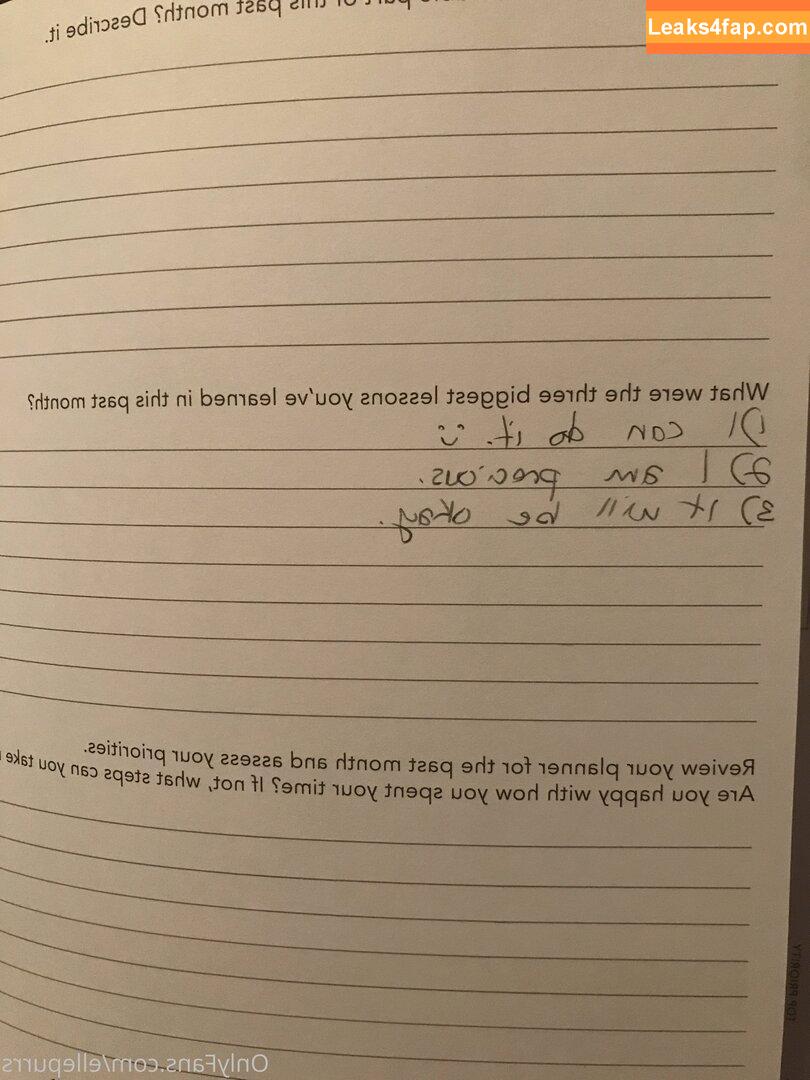 Leaks4fap.com
part of this past month? Describe it.
What were the three biggest lessons you've learned in this past month?
1) I can do it. :)
2) I am precious.
3) It will be okay.
Review your planner for the past month and assess your priorities.
Are you happy with how you spent your time? If not, what steps can you take
TOP PRIORITY
OnlyFans.com/ellepurrs